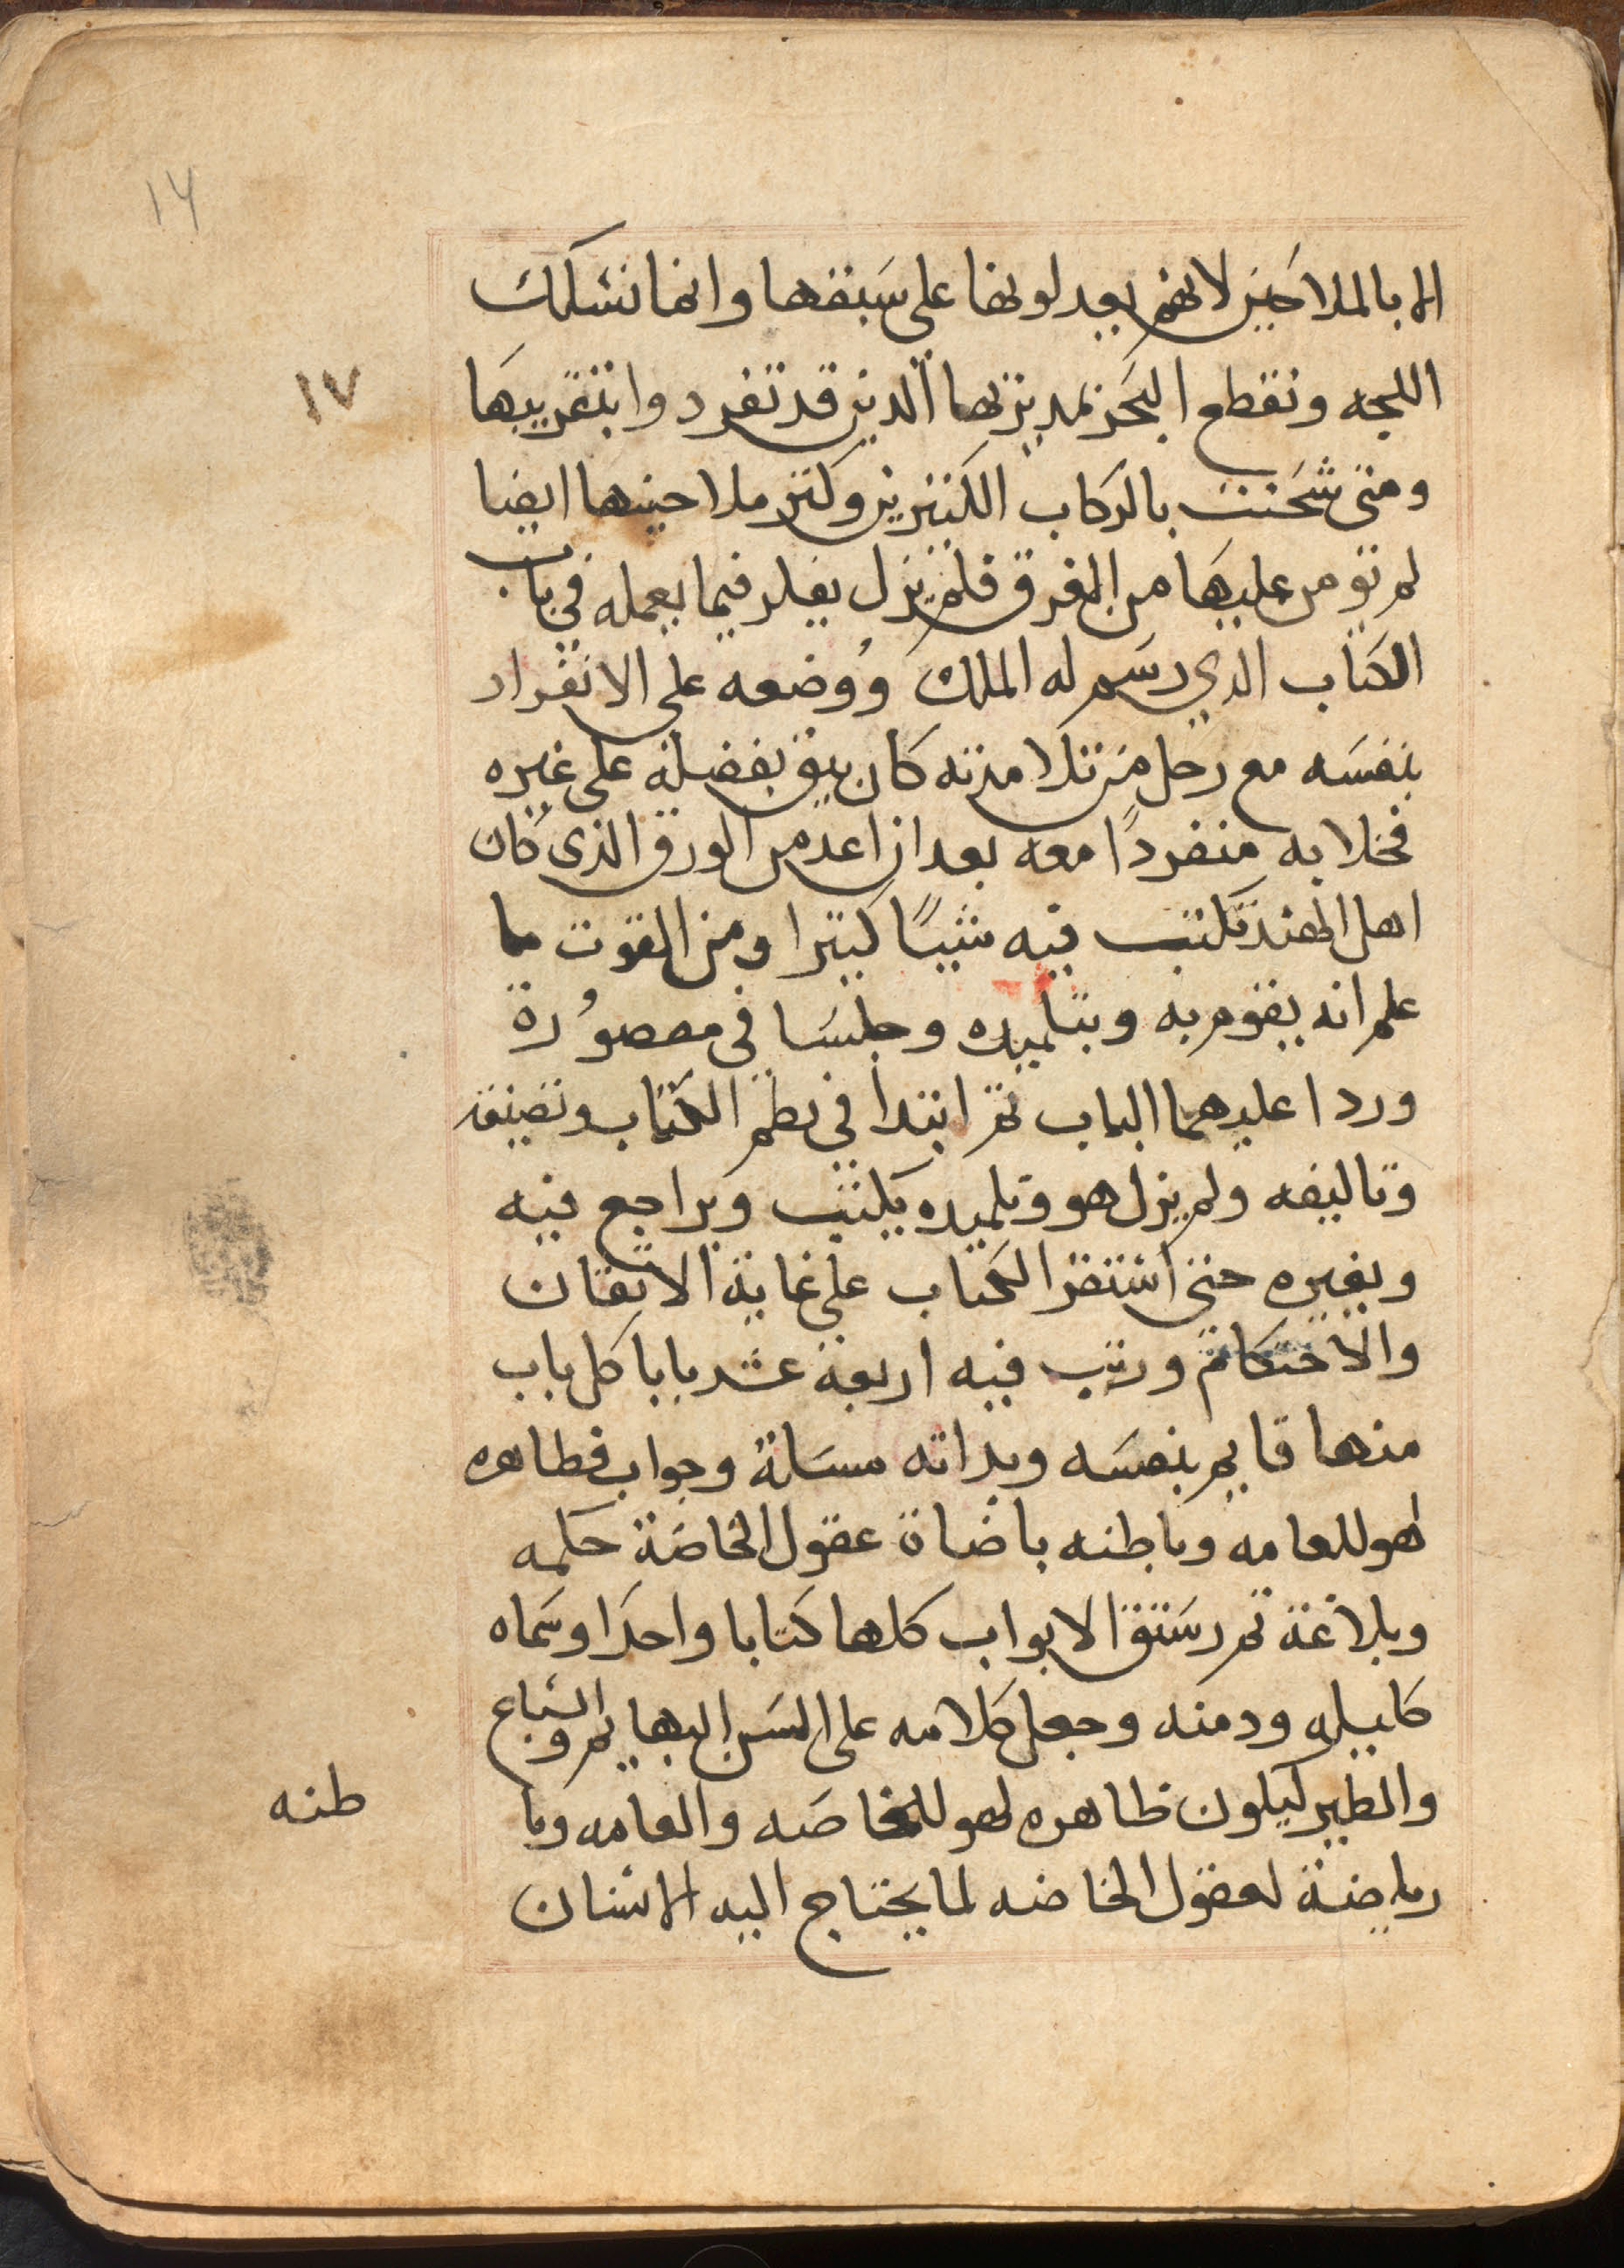 ١٧
الا بالملاحين لانهم يعدلونها على سبقها وانما نسلك
اللجه ونقطع البحر بمدبرها الذين قد تفردوا بتقريبها
ومتى شحنت بالركاب الكثيرين وكثر ملاحينها ايضا
لم تؤمن عليها من الغرق فلم يزل يفكر فيما يعمله في باب
الكتاب الذي رسم له الملك ووضعه على الانفراد
بنفسه مع رجل من تلامذته كان يثق بفضله على غيره
فخلا به منفردًا معه بعد ان اعد من الورق الذي كان
اهل الهند تكتب فيه شيئًا كثيرا ومن القوت ما
علم انه يقوم به وبتلميذه وجلسا في مقصورة
وردا عليهما الباب ثم ابتدا في نظم الكتاب وتصنيفه
وتاليفه ولم يزل هو وتلميذه يكتب ويراجع فيه
وبغيره حتى استقر الكتاب على غاية الاتقان
والاحتكام ورتب فيه اربعة عشر بابا كل باب
منها قايم بنفسه وبذاته مسالة وجواب فظاهره
لهو للعامه وباطنه باضاة عقول الخاصة حكمه
وبلاغة ثم رستق الابواب كلها كتابا واحدا وسماه
كليله ودمنه وجعل كلامه على السن البهايم والسباع
والطير ليكون ظاهره لهو للخاصه والعامه وبا
طنه
رياضة لعقول الخاصه لما يحتاج اليه الانسان